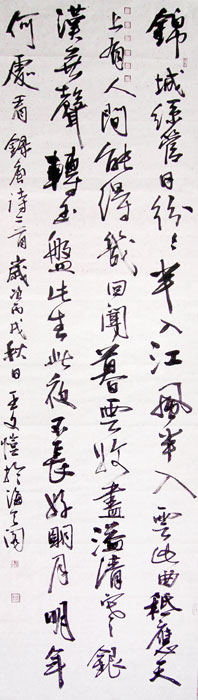 錦城絲管日紛々半入江風半入雲此曲秪應天
上有人間能得幾回聞暮雲收盡溢清寒銀
漢無聲轉玉盤此生此夜不長好明月明年
何處看錄唐詩二首歲次丙戌秋日王文愷於海天閣